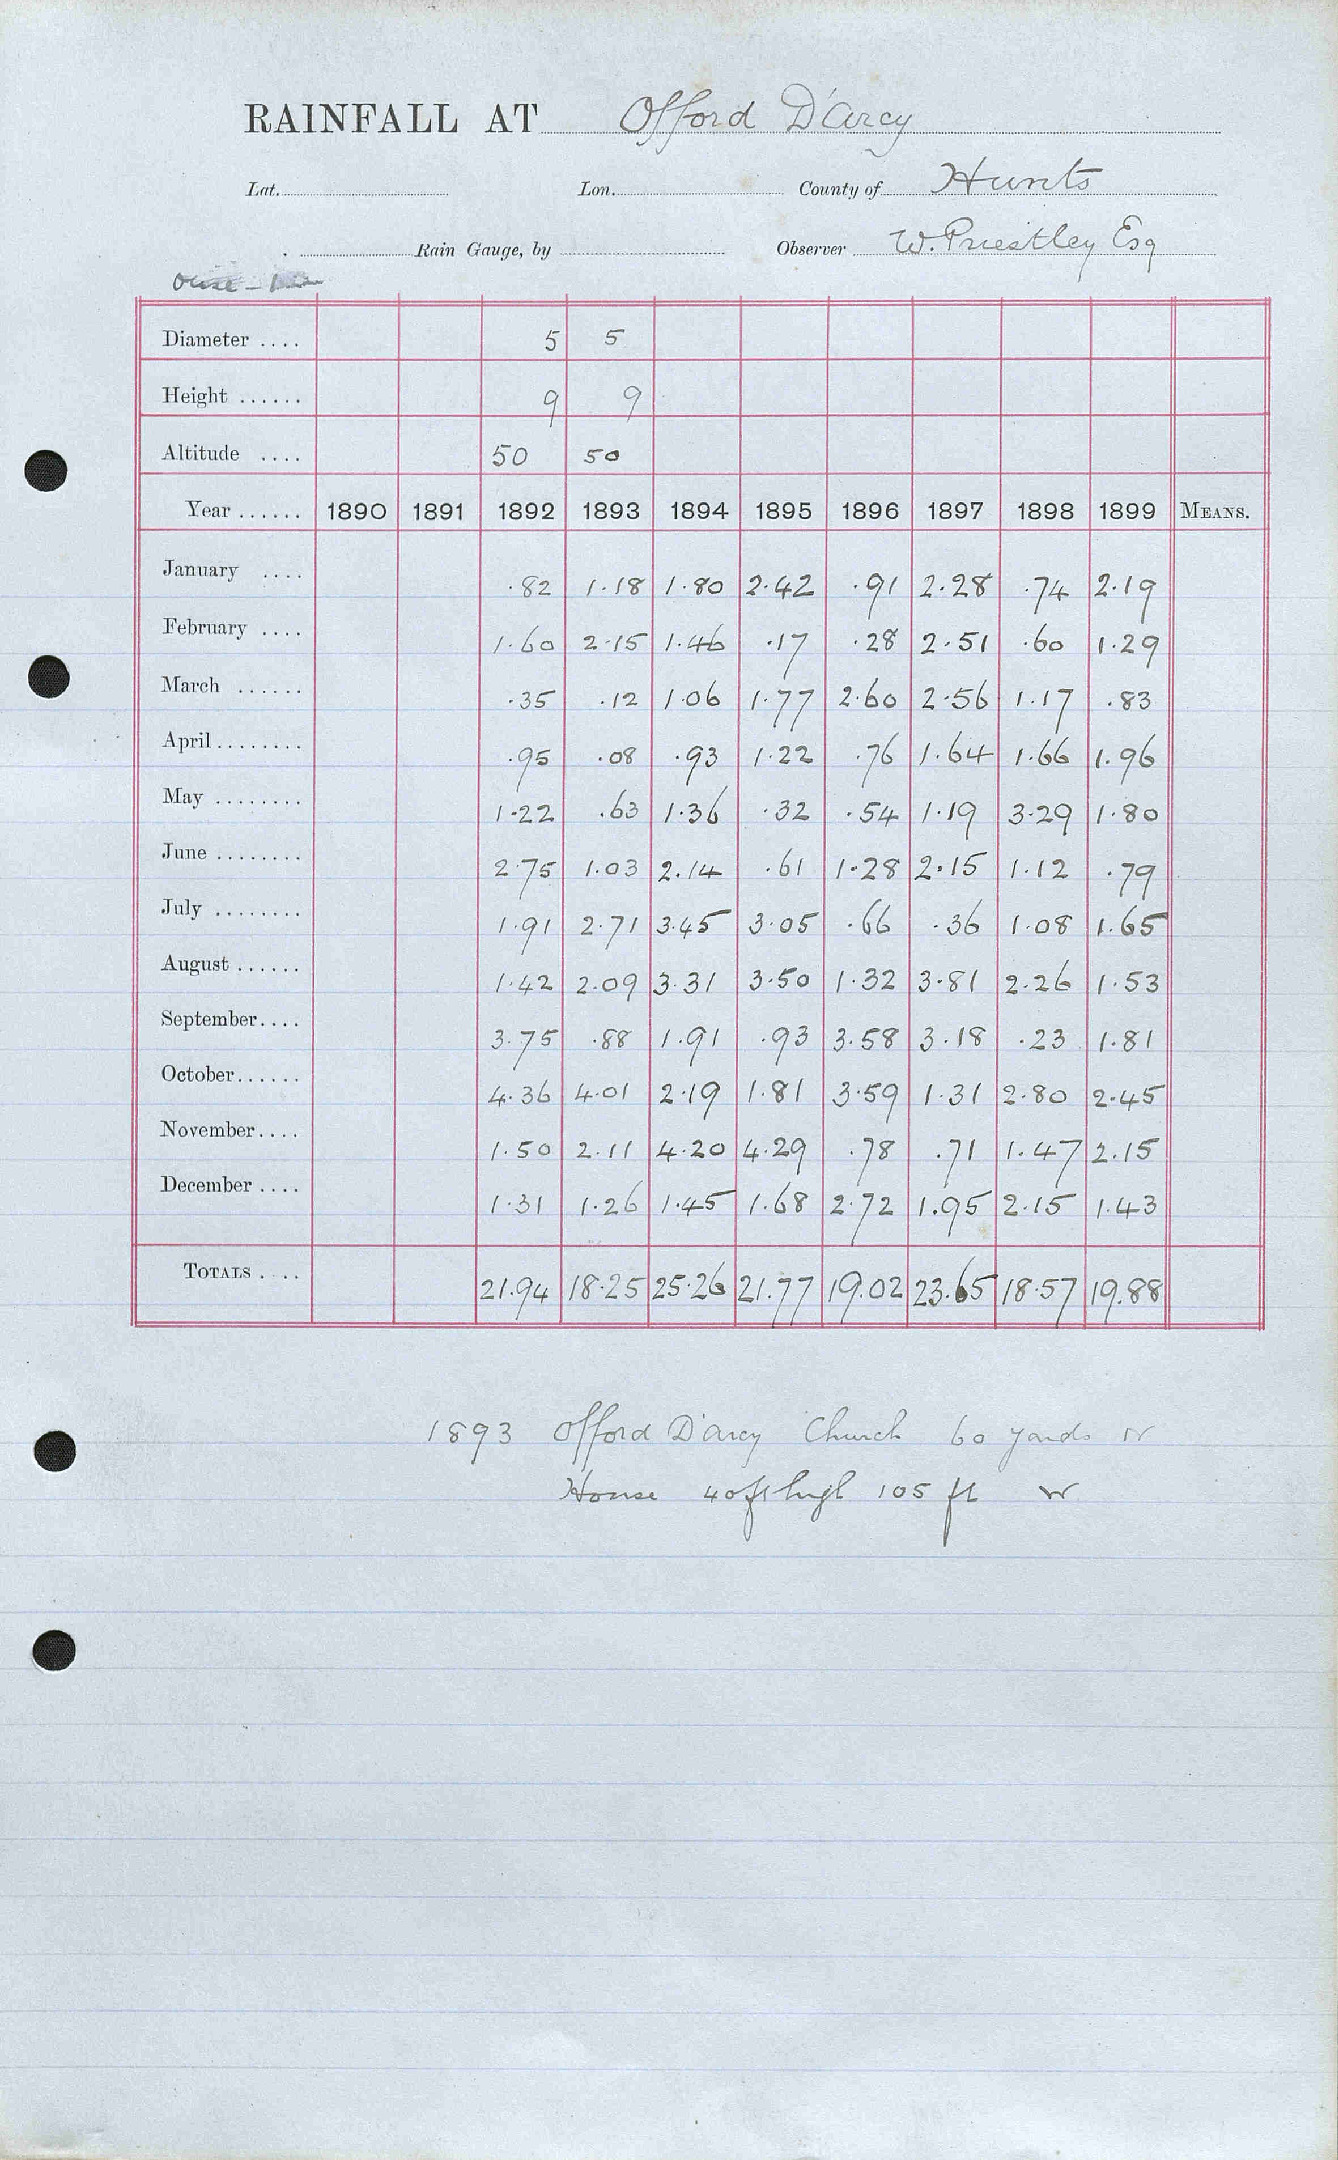 RAINFALL AT Offord D'Arcy
Lat. Lon. County of Hunts
Rain Gauge, by Observer W. Priestley Esq
Ouse
Diameter .... 5 5
Height ...... 9 9
Altitude .... 50 50
Year ...... 1890 1891 1892 1893 1894 1895 1896 1897 1898 1899 MEANS.
January .... .82 1.18 1.80 2.42 .91 2.28 .74 2.19
February .... 1.60 2.15 1.46 .17 .28 2.51 .60 1.29
March ...... .35 .12 1.06 1.77 2.60 2.56 1.17 .83
April ........ .95 .08 .93 1.22 .76 1.64 1.66 1.96
May ........ 1.22 .63 1.36 .32 .54 1.19 3.29 1.80
June ........ 2.75 1.03 2.14 .61 1.28 2.15 1.12 .79
July ........ 1.91 2.71 3.45 3.05 .66 .36 1.08 1.65
August ...... 1.42 2.09 3.31 3.50 1.32 3.81 2.26 1.53
September .... 3.75 .88 1.91 .93 3.58 3.18 .23 1.81
October ...... 4.36 4.01 2.19 1.81 3.59 1.31 2.80 2.45
November .... 1.50 2.11 4.20 4.29 .78 .71 1.47 2.15
December .... 1.31 1.26 1.45 1.68 2.72 1.95 2.15 1.43
TOTALS .... 21.94 18.25 25.26 21.77 19.02 23.65 18.57 19.88
1893 Offord D'Arcy Church 60 yards
House 40ft high 105 ft W